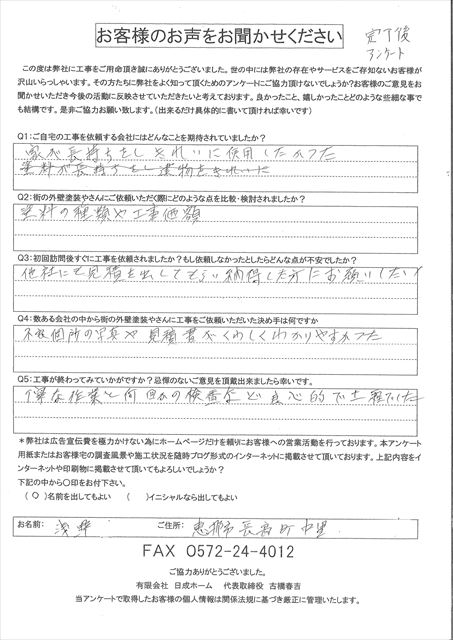 お客様のお声をお聞かせください
完了後
アンケート
この度は弊社に工事をご用命頂き誠にありがとうございました。世の中には弊社の存在やサービスをご存知ないお客様が
沢山いらっしゃいます。その方たちに弊社をよく知って頂くためのアンケートにご協力頂けないでしょうか?お客様のご意見をお
聞かせいただき今後の活動に反映させていただきたいと考えております。良かったこと、嬉しかったことどのような些細な事で
も結構です。是非ご協力お願い致します。(出来るだけ具体的に書いて頂ければ幸いです)
Q1:ご自宅の工事を依頼する会社にはどんなことを期待されていましたか?
家が長持ちをしきれいに使用したかった
塗料が長持ちをし建物をきれいに
Q2:街の外壁塗装やさんにご依頼いただく際にどのような点を比較・検討されましたか?
塗料の種類や工事価額
Q3:初回訪問後すぐに工事を依頼されましたか?もし依頼しなかったとしたらどんな点が不安でしたか?
他社にも見積を出してもらい納得した方にお願いしたい
Q4:数ある会社の中から街の外壁塗装やさんに工事をご依頼いただいた決め手は何ですか
不良個所の写真や見積書がくわしくわかりやすかった
Q5:工事が終わってみていかがですか?忌憚のないご意見を頂戴出来ましたら幸いです。
丁寧な作業と何回かの検査など良心的で
*弊社は広告宣伝費を極力かけない為にホームページだけを頼りにお客様への営業活動を行っております。本アンケート
用紙またはお客様宅の調査風景や施工状況を随時ブログ形式のインターネットに掲載させて頂いております。上記内容をイ
ンターネットや印刷物に掲載させて頂いてもよろしいでしょうか?
下記の中から〇印をお付下さい。
(〇)名前を出してもよい ( )イニシャルなら出してもよい
お名前: 浅井 ご住所: 恵那市長島町中野
FAX 0572-24-4012
ご協力ありがとうございました。
有限会社 日成ホーム 代表取締役 古橋春吉
当アンケートで取得したお客様の個人情報は関係法規に基づき厳正に管理いたします。